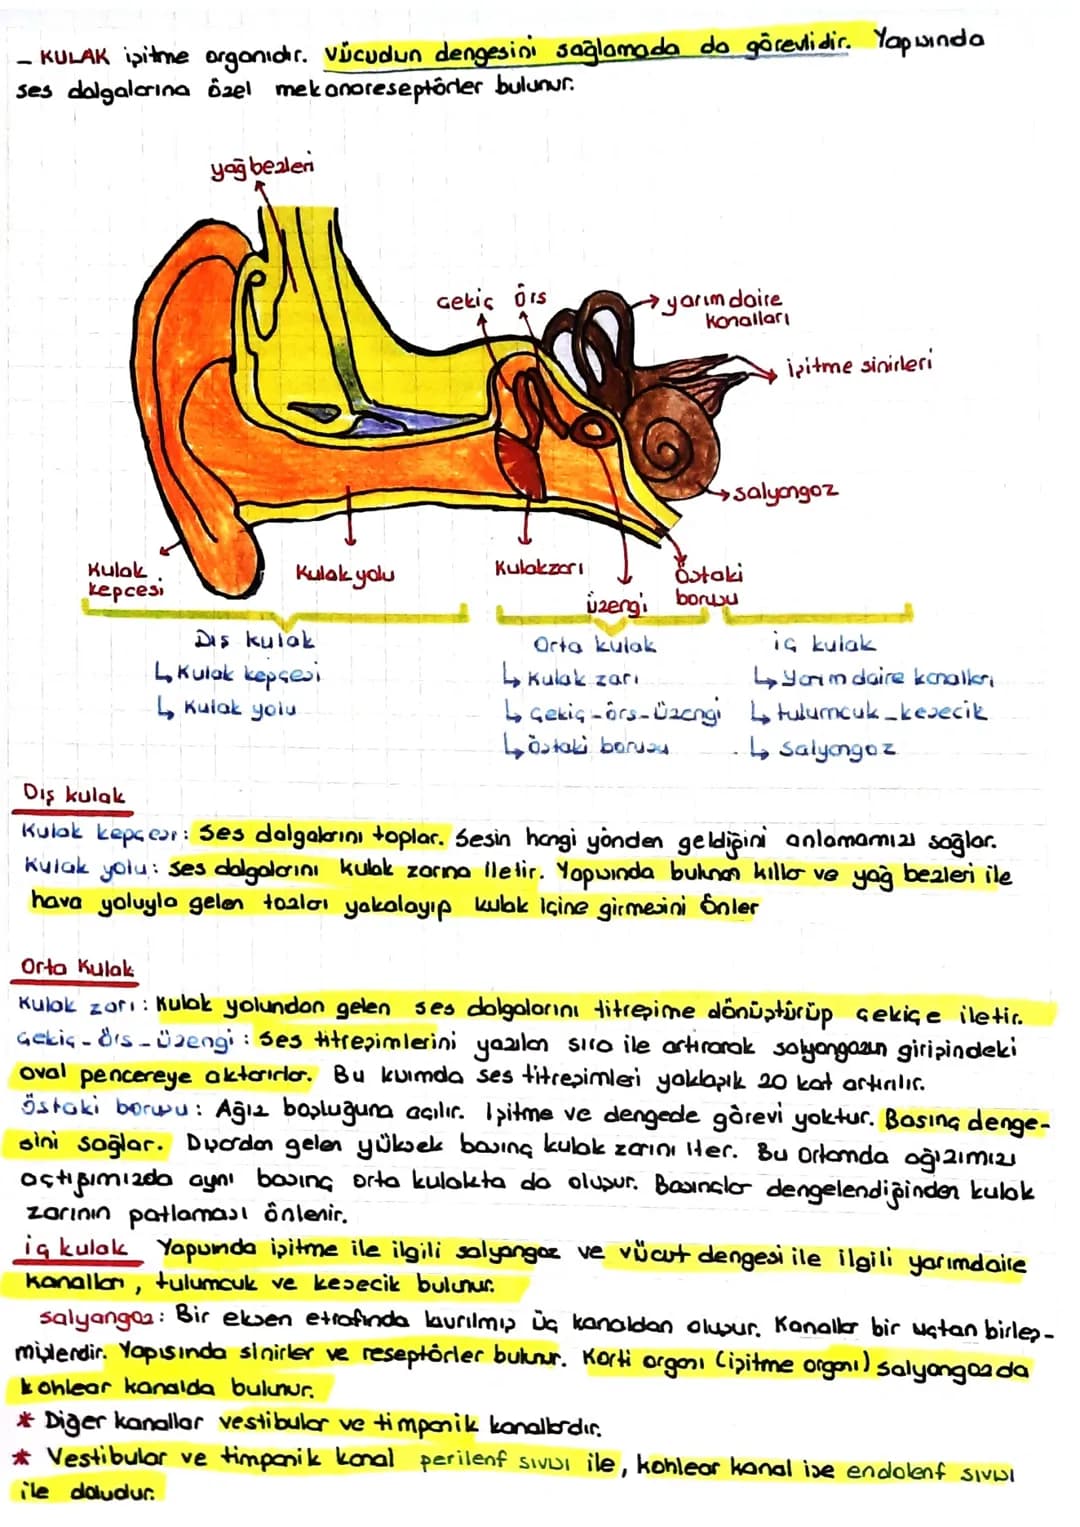 – KULAK işitme organıdır. Vücudun dengesini sağlamada da görevlidir. Yapısında
ses dalgalarına özel mekanoreseptörler bulunur.
yağ bezleri
Çekiç örs
yarım daire
kanalları
işitme sinirleri
salyangoz
Kulak
kepçesi
Kulak yolu
Kulakzarı
üzengi
Östaki
borusu
Dış kulak
↳ Kulak kepçesi
↳ Kulak yolu
Orta kulak
↳ Kulak zarı
↳ Çekiç-örs-üzengi
↳ östaki borusu
iç kulak
↳ Yarım daire kanalları
↳ tulumcuk_kesecik
↳ salyangoz
Dış kulak
Kulak kepçesi: Ses dalgalarını toplar. Sesin hangi yönden geldiğini anlamamızı sağlar.
Kulak yolu: Ses dalgalarını kulak zarına iletir. Yapısında bulunan kıllar ve yağ bezleri ile
hava yoluyla gelen tozları yakalayıp kulak içine girmesini önler
Orta Kulak
Kulak zarı: Kulak yolundan gelen ses dalgalarını titreşime dönüştürüp çekiçe iletir.
Çekiç-Örs-Üzengi: Ses titreşimlerini yazılan sıra ile artırarak salyangozun girişindeki
oval pencereye aktarırlar. Bu kısımda ses titreşimleri yaklaşık 20 kat artırılır.
Östaki borusu: Ağız boşluğuna açılır. İşitme ve dengede görevi yoktur. Basınç denge-
sini sağlar. Dışardan gelen yüksek basınç kulak zarını iter. Bu ortamda ağızımızı
açtığımızda aynı basınç orta kulakta da oluşur. Basınçlar dengelendiğinden kulak
zarının patlaması önlenir.
iç kulak Yapısında işitme ile ilgili salyangoz ve vücut dengesi ile ilgili yarımdaire
kanalları, tulumcuk ve kesecik bulunur.
salyangoz: Bir eksen etrafında kıvrılmış üç kanaldan oluşur. Kanallar bir uçtan birleş-
mişlerdir. Yapısında sinirler ve reseptörler bulunur. Korti organı (işitme organı) salyangozda
kohlear kanalda bulunur.
* Diğer kanallar vestibular ve timpanik kanallardır.
* Vestibular ve timpanik kanal perilenf sıvısı ile, kohlear kanal ise endolenf sıvısı
ile doludur.